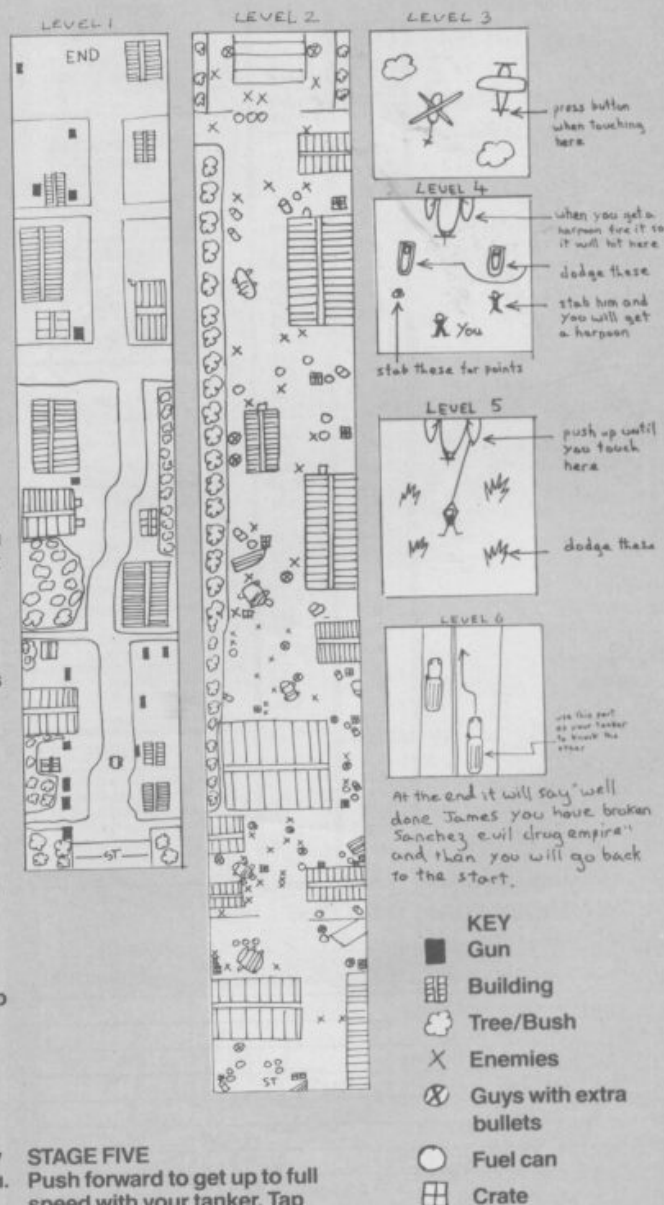 LEVEL 1
END
ST
LEVEL 2
ST
LEVEL 3
press button
when touching
here
LEVEL 4
when you get a
harpoon fire it so
it will hit here
dodge these
stab him and
you will get
a harpoon
You
stab these for points
LEVEL 5
push up until
you touch
here
dodge these
LEVEL 6
use this part
of your tanker
to knock the
other
At the end it will say "well
done James you have broken
Sanchez evil drug empire"
and then you will go back
to the start.
KEY
Gun
Building
Tree/Bush
Enemies
Guys with extra
bullets
Fuel can
Crate
STAGE FIVE
Push forward to get up to full
speed with your tanker. Tap